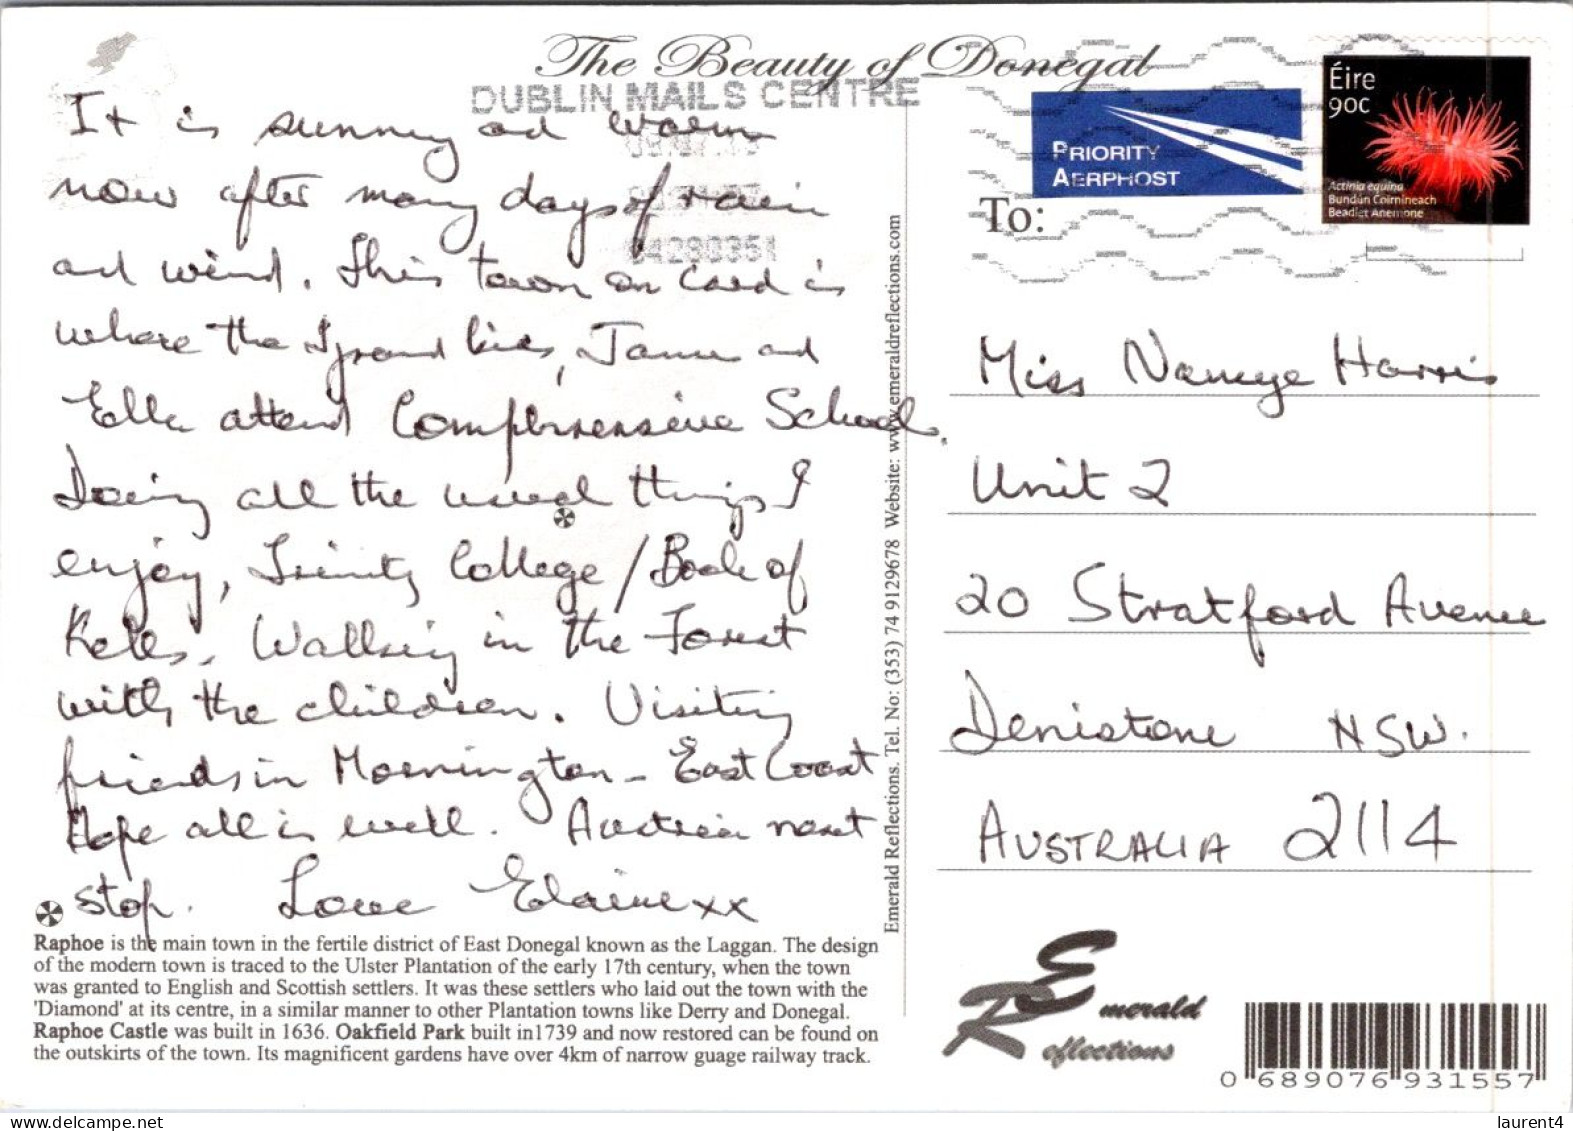 The Beauty of Donegal
DUBLIN MAILS CENTRE
It is sunny ad warm
now after many days of rain
and wind. This town on card is
where the grand kids, Jamie and
Ella attend Comprehensive School.
Doing all the usual things I
enjoy, Trinity College / Book of
Kells, Walking in the Forest
with the children. Visiting
friends in Mornington - East Coast
Hope all is well. Austria next
stop. Love Elaine xx
Raphoe is the main town in the fertile district of East Donegal known as the Laggan. The design
of the modern town is traced to the Ulster Plantation of the early 17th century, when the town
was granted to English and Scottish settlers. It was these settlers who laid out the town with the
'Diamond' at its centre, in a similar manner to other Plantation towns like Derry and Donegal.
Raphoe Castle was built in 1636. Oakfield Park built in1739 and now restored can be found on
the outskirts of the town. Its magnificent gardens have over 4km of narrow guage railway track.
Emerald Reflections. Tel. No: (353) 74 9129678 Website: www.emeraldreflections.com
PRIORITY
AERPHOST
Éire
90c
Actinia equina
Bundún Coirníneach
Beadlet Anemone
To:
Miss Harris
Unit 2
20 Stratford Avenue
Denistone NSW.
AUSTRALIA 2114
Emerald
Reflections
0 689076 931557
laurent4